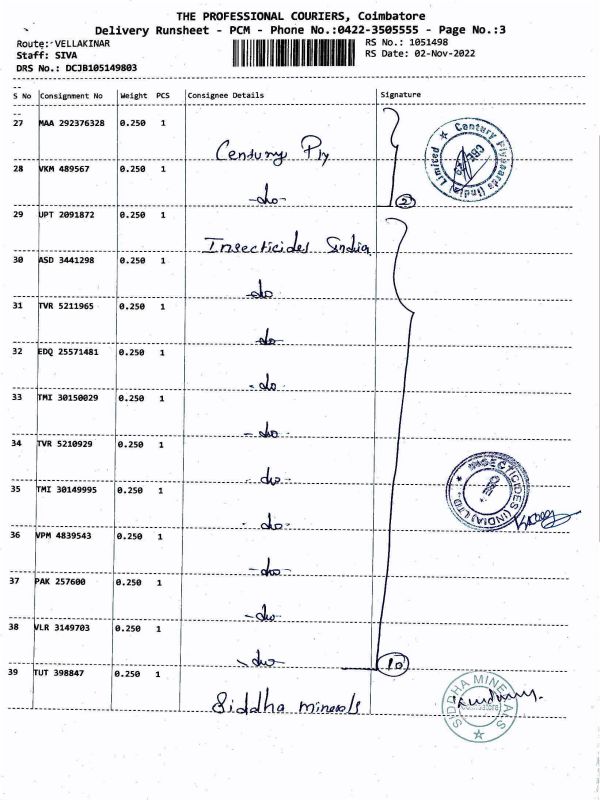 THE PROFESSIONAL COURIERS, Coimbatore
Delivery Runsheet - PCM - Phone No.:0422-3505555 - Page No.:3
Route:-VELLAKINAR RS No.: 1051498
Staff: SIVA RS Date: 02-Nov-2022
DRS No.: DCJB105149803
S No Consignment No Weight PCS Consignee Details Signature
27 MAA 292376328 0.250 1 Century Ply
28 VKM 489567 0.250 1 -do- 2
29 UPT 2091872 0.250 1 Insecticides India
30 ASD 3441298 0.250 1 do
31 TVR 5211965 0.250 1 -do-
32 EDQ 25571481 0.250 1 -do-
33 TMI 30150029 0.250 1 -do-
34 TVR 5210929 0.250 1 -do-
35 TMI 30149995 0.250 1 -do-
36 VPM 4839543 0.250 1 -do-
37 PAK 257600 0.250 1 -do-
38 VLR 3149703 0.250 1 -do- 10
39 TUT 398847 0.250 1 Siddha minerals
Century Plyboards (India) Limited
CBE
INSECTICIDES (INDIA) LTD
SIDDHA MINERALS